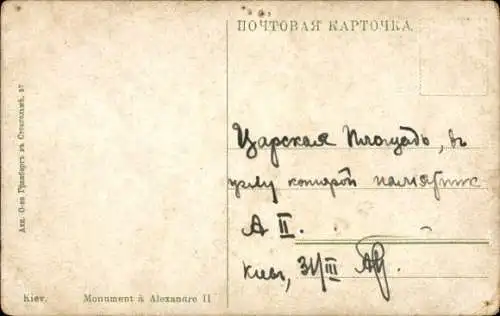 ПОЧТОВАЯ КАРТОЧКА.
Царская Площадь, въ
углу которой памятник
А II.
Киев, 31/III
Акц. О-во Гранбергъ въ Стокгольмѣ, 57
Kiev. Monument à Alexandre II